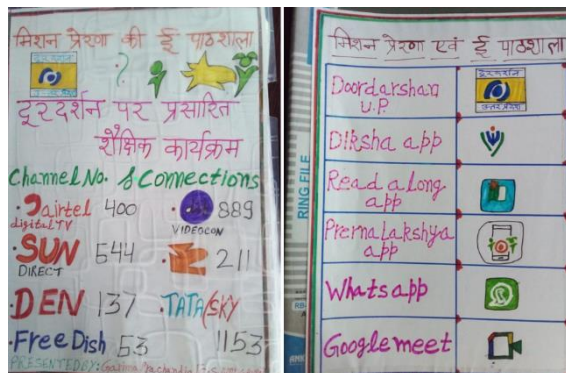 मिशन प्रेरणा की ई पाठशाला
दूरदर्शन पर प्रसारित
शैक्षिक कार्यक्रम
Channel No. & Connections
airtel 400
digital TV
889
VIDEOCON
SUN 544
DIRECT
211
DEN 137
TATA/SKY
1153
Free Dish 53
PRESENTED BY:
मिशन प्रेरणा एवं ई पाठशाला
Doordarshan
U.P.
दूरदर्शन
उत्तर प्रदेश
Diksha app
Read a long
app
Prernalakshya
app
Whatsapp
Googlemeet
RING FILE